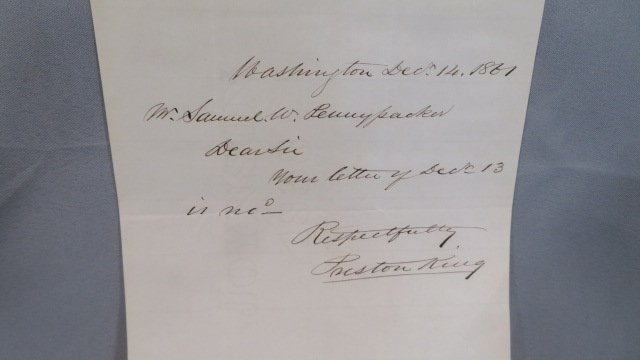 Washington Decr. 14. 1861
Mr. Samuel W. Pennypacker
Dear Sir
Your letter of Decr 13
is recd
Respectfully
Preston King